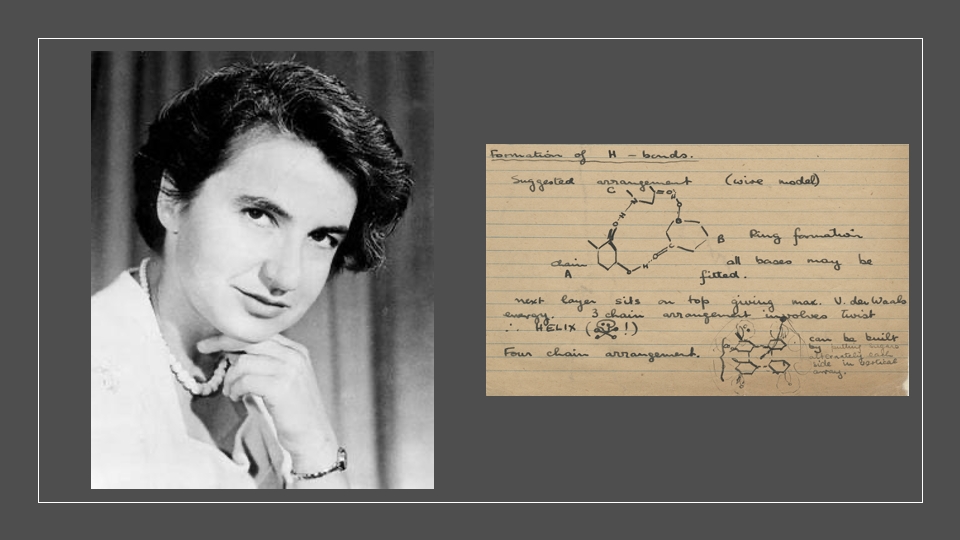 Formation of H - bonds.
Suggested arrangement (wire model)
C
B Ring formation
chain all bases may be
A fitted.
next layer sits on top giving max. V. der Waals
energy. 3 chain arrangement involves twist
∴ HELIX ( !)
can be built
Four chain arrangement. by putting sugars
alternately each
side in
array.